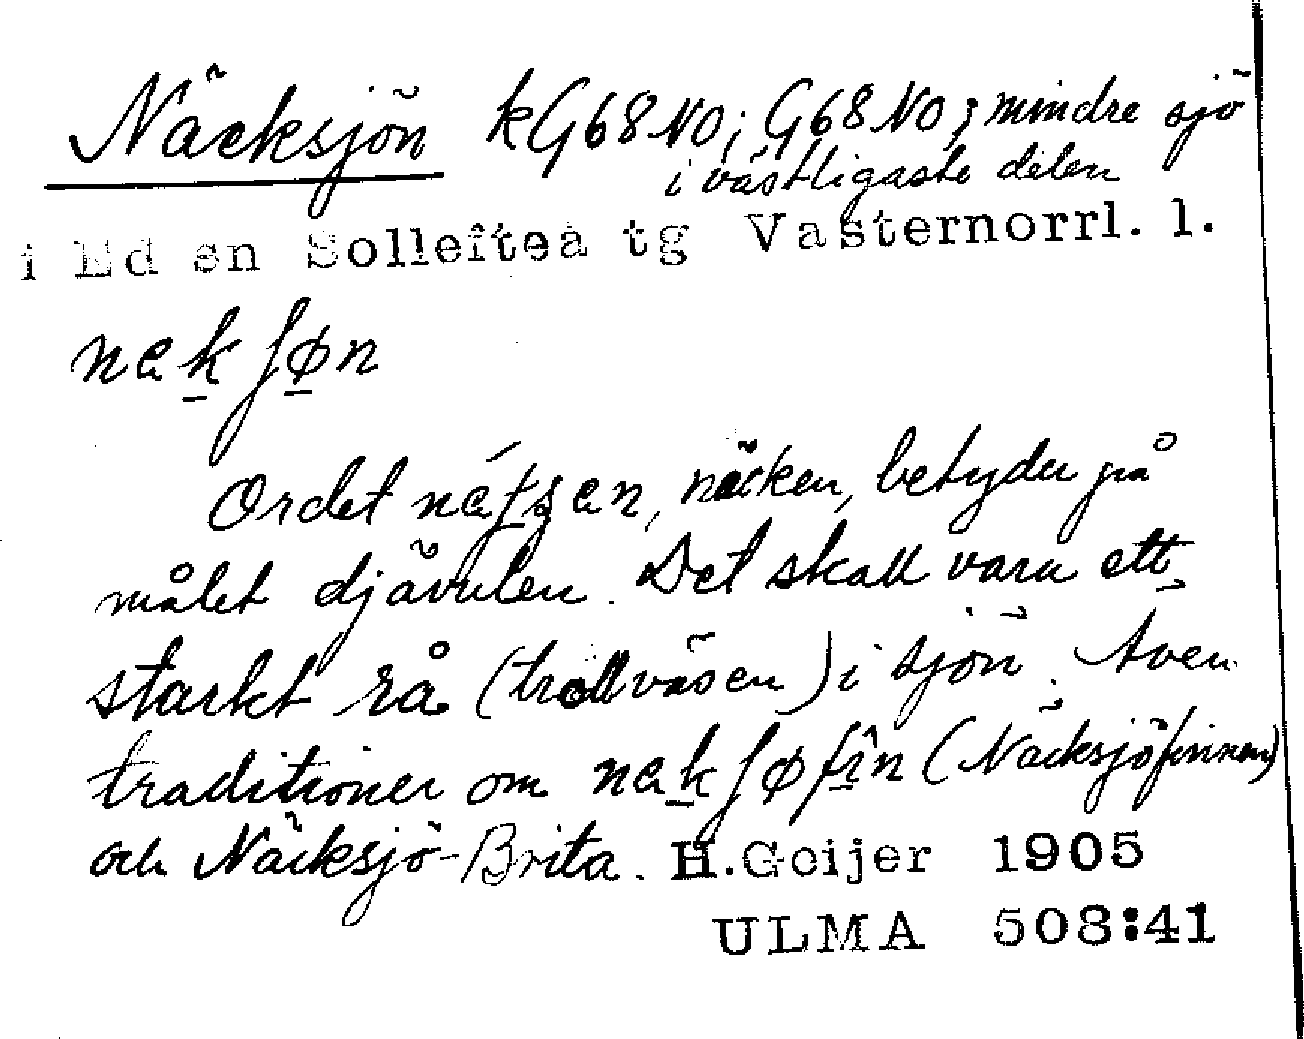 Näcksjön kG68NO; G68NO; mindre sjö
i västligaste delen
i Ed sn Sollefteå tg Västernorrl. l.
nak ʃøn
Ordet , näcken, betyder på
målet djävulen. Det skall vara ett
starkt rå (trollväsen) i sjön. Även
traditioner om nak ʃøfin (Näcksjöfinnen)
och Näcksjö-Brita. H.Geijer 1905
ULMA 508:41